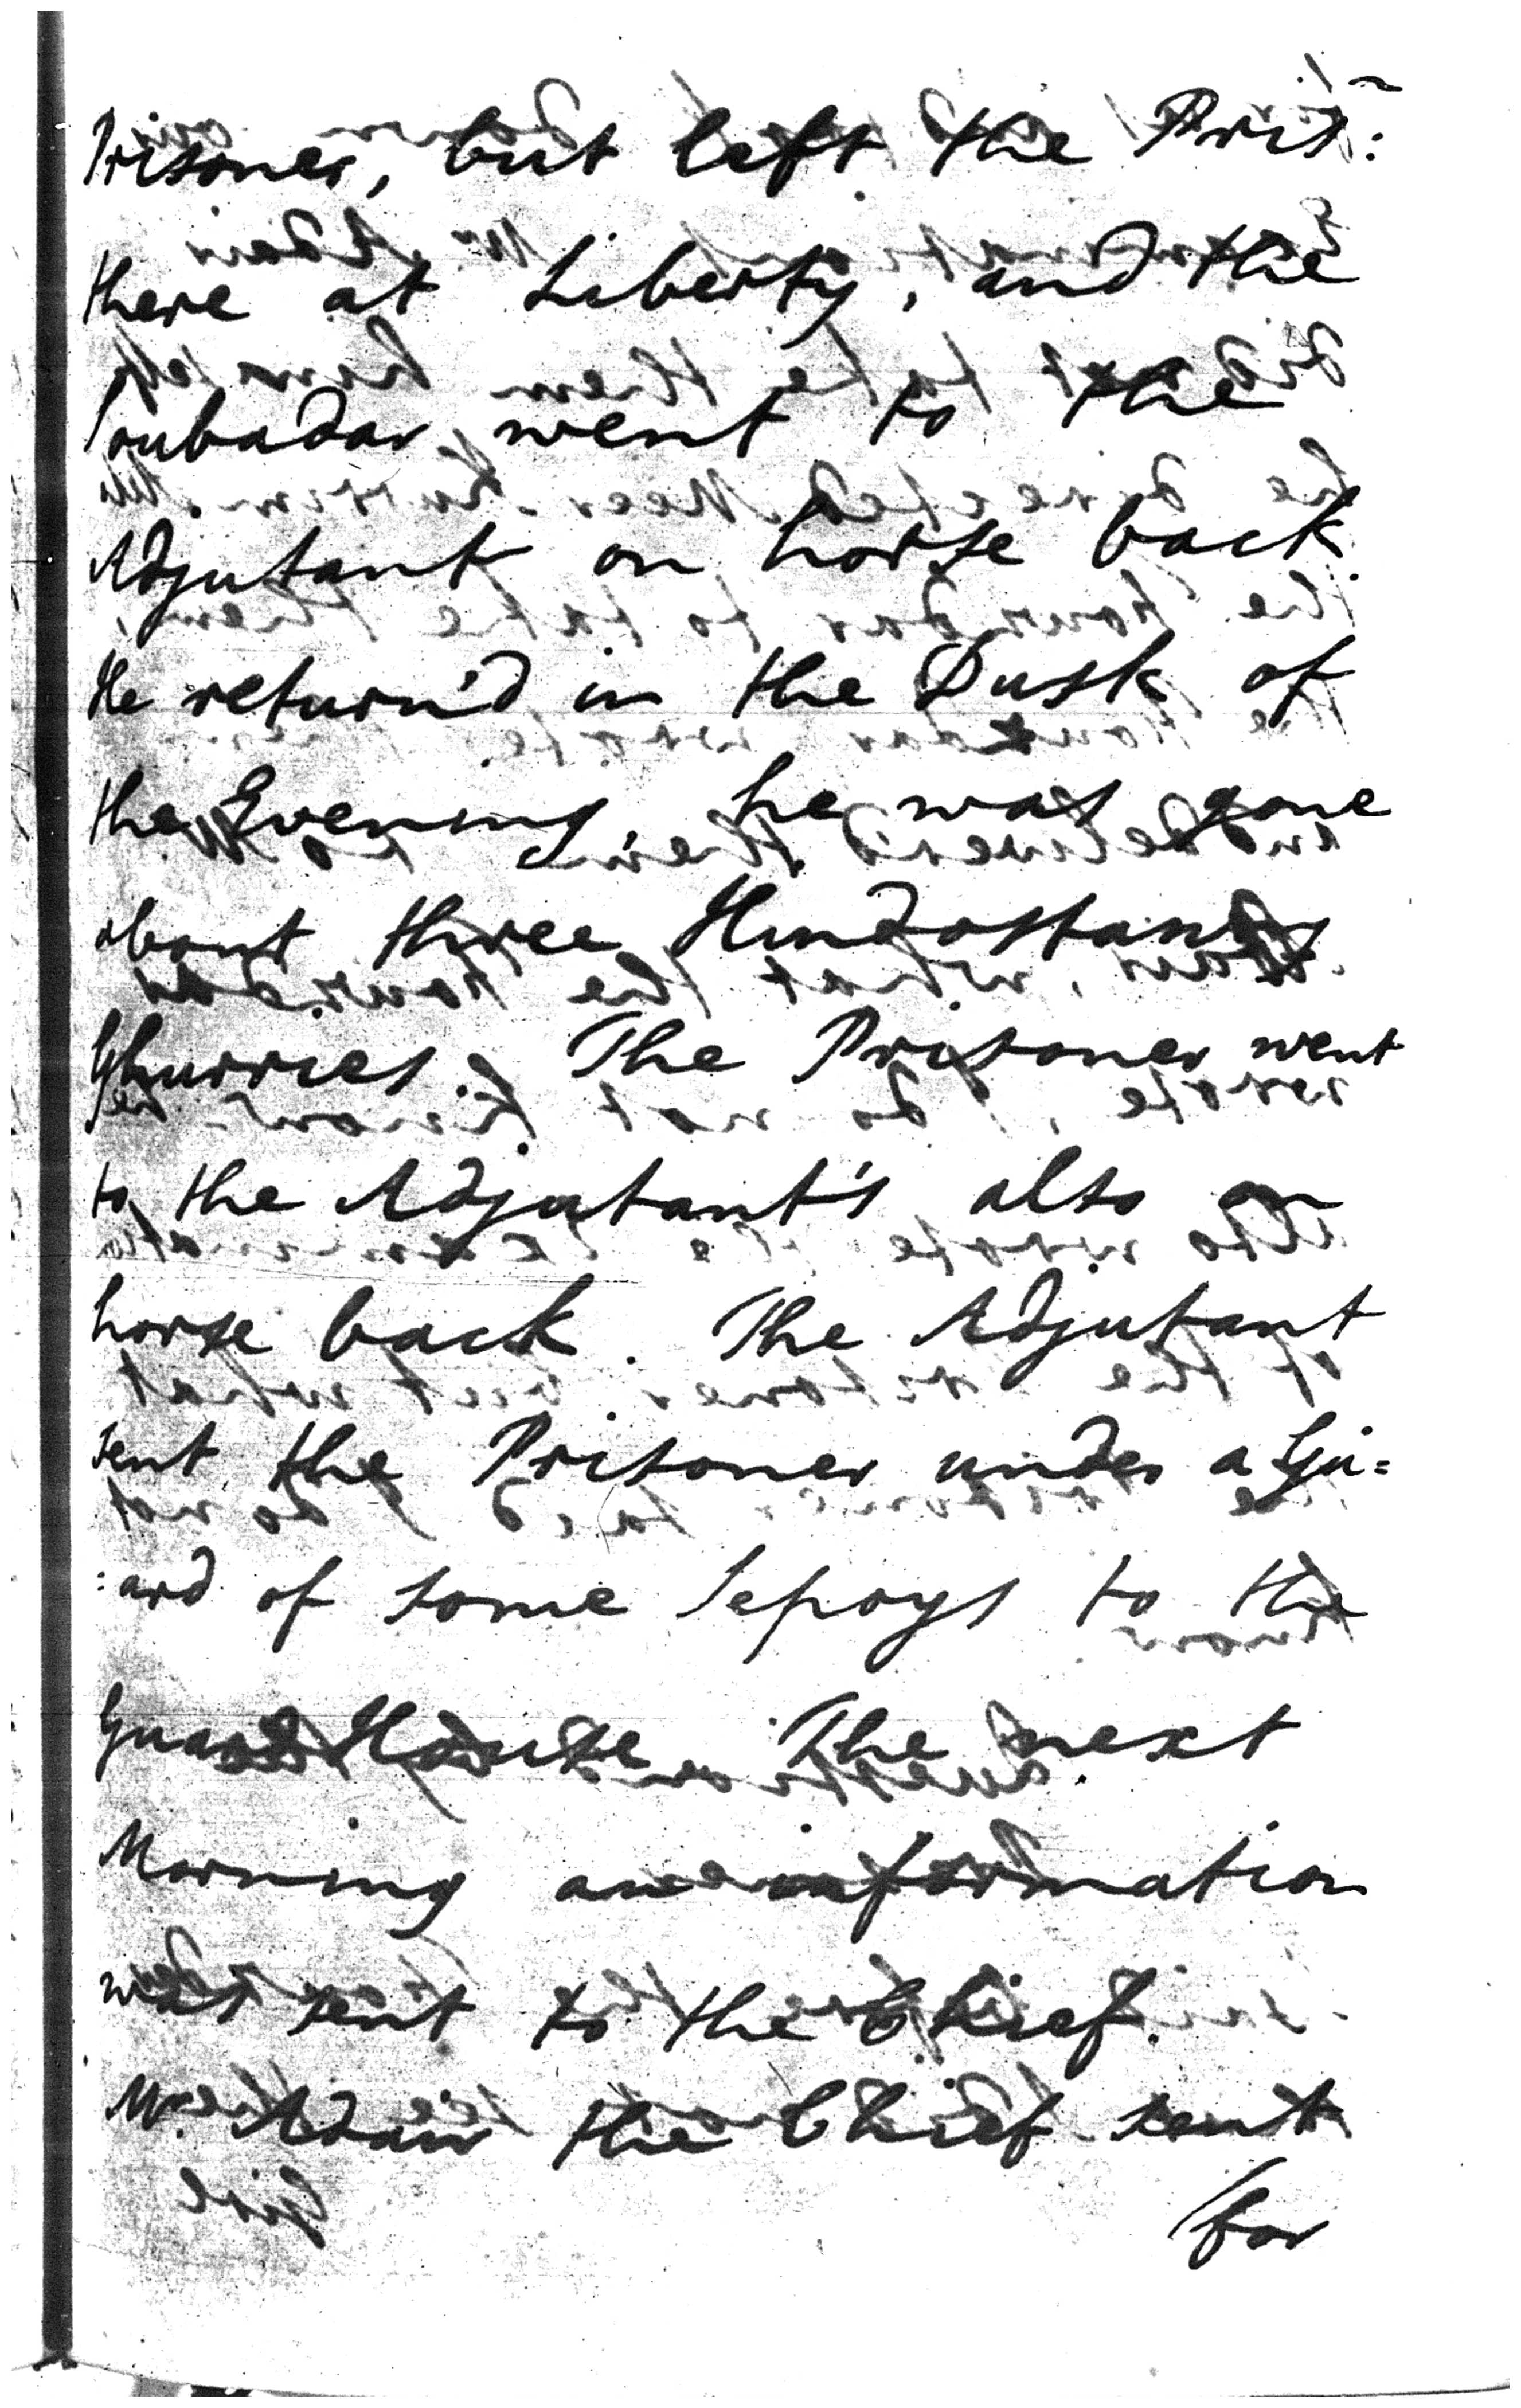 Prisoner, but left the Pris:
there at Liberty, and the
Soubadar went to the
Adjutant on horse back.
He return'd in the Dusk of
the Evening, he was gone
about three Hindostany
Ghurries. The Prisoner went
to the Adjutant's also on
horse back. The Adjutant
sent the Prisoner under a Gu=
:ard of some Sepoys to the
Guard House. The next
Morning an information
was sent to the Chief.
Mr. Adair the Chief sent
for